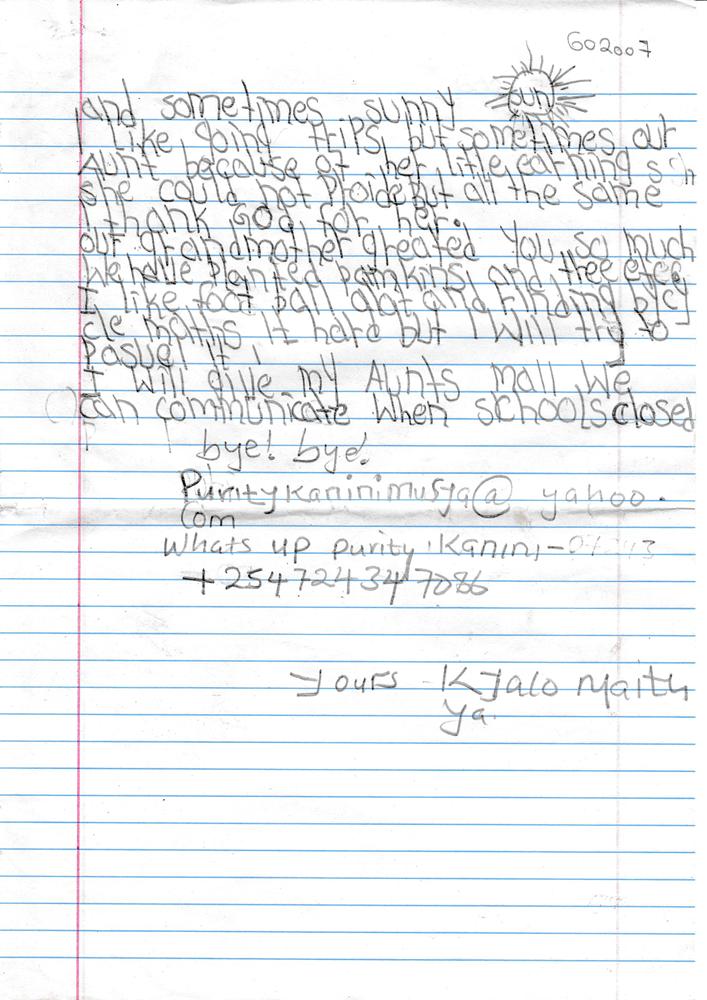 602007
and sometimes sunny
sun
I like going trips but sometimes our
Aunt because of her little earning s
she could not proide but all the same
I thank God for her.
our grandmother greated you so much
We have planted pamkins and three
I like foot ball alot and Finding bicy
cle maths it hard but I will try to
it
I will give my Aunts mail We
can communicate when schools closed
bye! bye!
@ yahoo.
com
Whats up purity Kanini -
+254724347086
yours Kyalo Maithy
ya